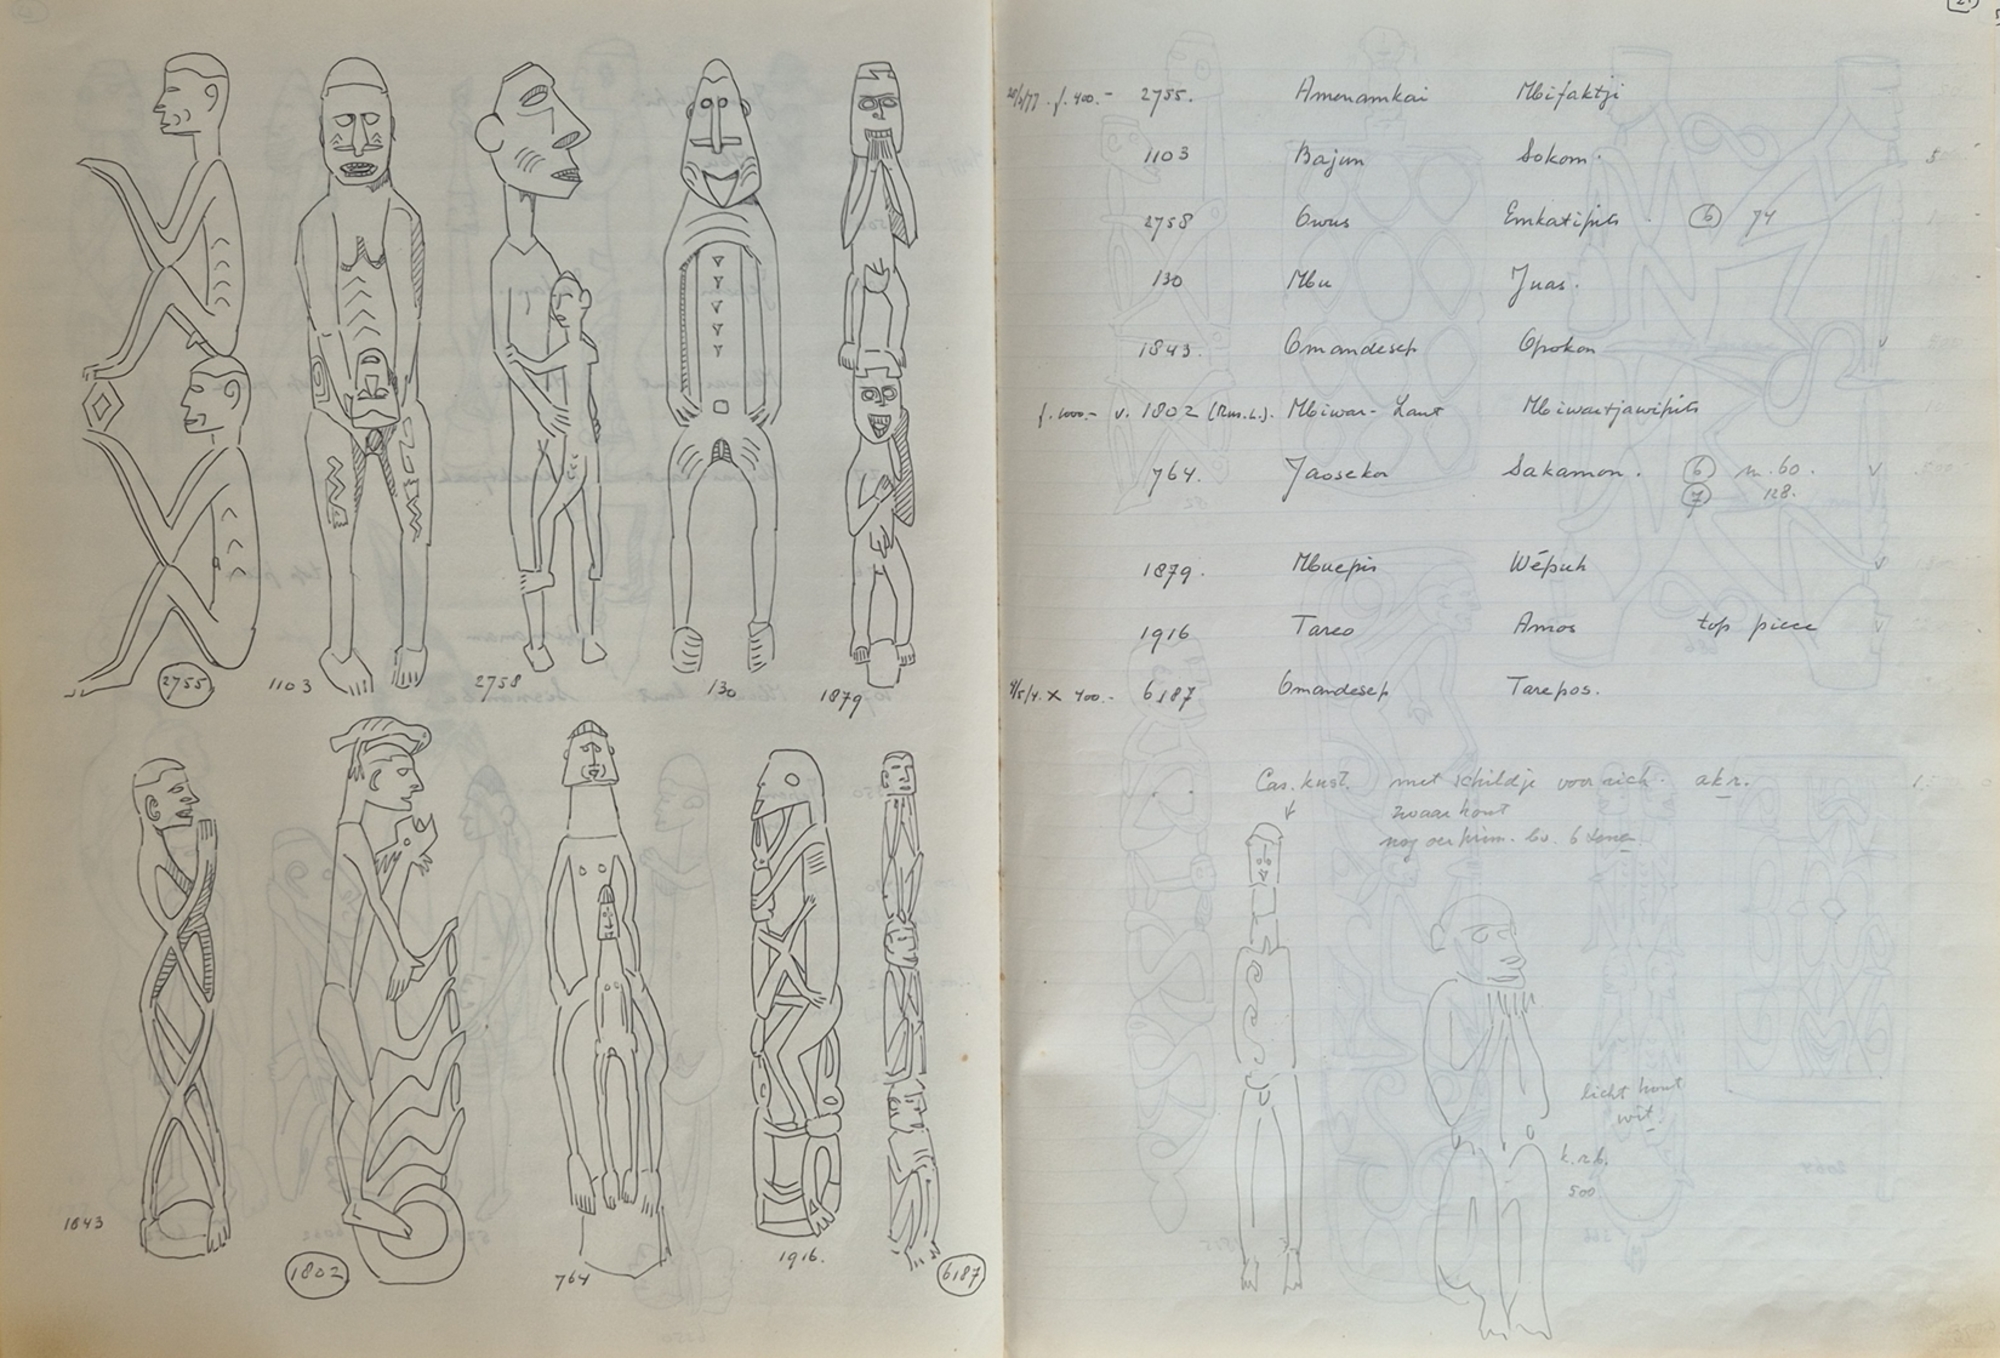 2755
1103
2758
130
1879
1843
1802
764
1916.
6187
f. 400.- 2755. Amenamkai Mbifaktji
1103 Bajun Sokom.
2758 Owus Emkatipits 6 74
130 Mbu Juas.
1843. Omandesep Opokon
f. 1000.- v. 1802 Mbiwar-Laut Mbiwartjawipits
764. Jaosekor Sakamon. 6 n. 60. v
7 128.
1879. Mbuepis Wépuh
1916 Tareo Amos top piece
X 400.- 6187 Omandesep Tarepos.
Cas. kust. met schildje voor zich. akr.
zwaar hout
nog oer prim.
licht hout
wit.
500